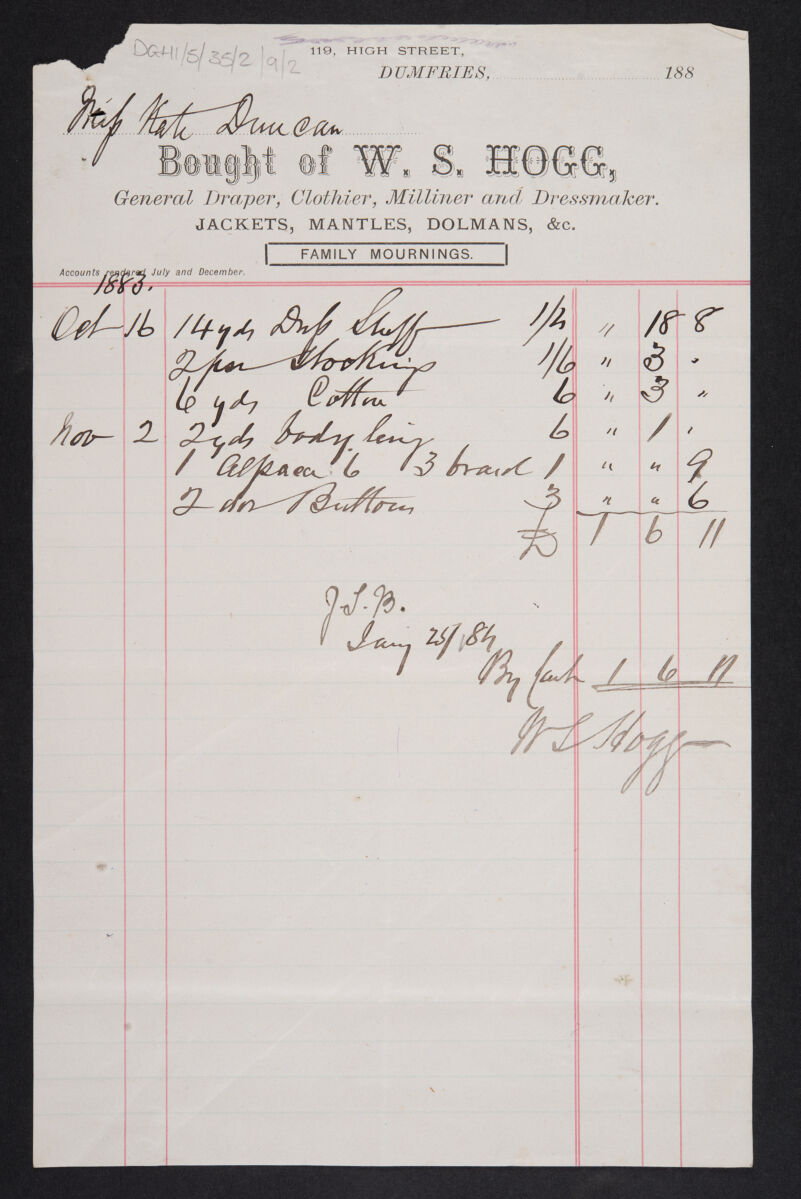 DGH1/5/35/2/9/2
119, HIGH STREET,
DUMFRIES, 188
Miss Kate Duncan
Bought of W. S. HOGG,
General Draper, Clothier, Milliner and Dressmaker.
JACKETS, MANTLES, DOLMANS, &c.
FAMILY MOURNINGS.
Accounts rendered July and December.
1883.
Oct 16 14 yds Dress Stuff 1/4 " 18 8
2 pr Stockings 1/6 " 3 "
6 yds Cotton 6 " 3 "
Nov 2 2 yds body ling 6 " 1 "
1 Alpaca 6 3 braid 1 " " 9
2 doz Buttons 3 " " 6
£ 1 6 11
J.S.B.
Jany 25/84
By Cash 1 6 11
W S Hogg